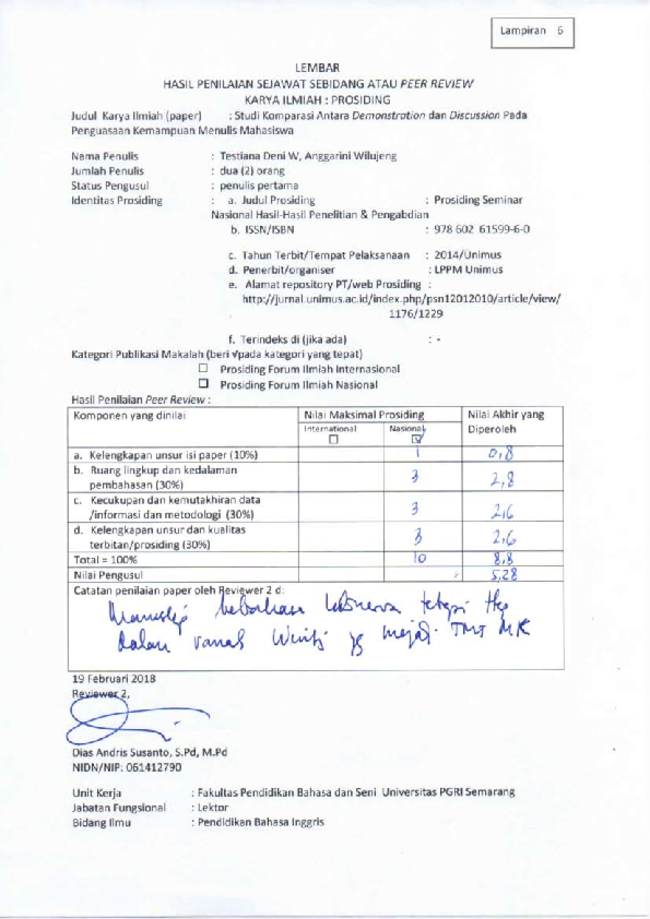 Lampiran 6
LEMBAR
HASIL PENILAIAN SEJAWAT SEBIDANG ATAU PEER REVIEW
KARYA ILMIAH : PROSIDING
Judul Karya Ilmiah (paper) : Studi Komparasi Antara Demonstration dan Discussion Pada
Penguasaan Kemampuan Menulis Mahasiswa
Nama Penulis : Testiana Deni W, Anggarini Wilujeng
Jumlah Penulis : dua (2) orang
Status Pengusul : penulis pertama
Identitas Prosiding : a. Judul Prosiding : Prosiding Seminar
Nasional Hasil-Hasil Penelitian & Pengabdian
b. ISSN/ISBN : 978 602 61599-6-0
c. Tahun Terbit/Tempat Pelaksanaan : 2014/Unimus
d. Penerbit/organiser : LPPM Unimus
e. Alamat repository PT/web Prosiding :
http://jurnal.unimus.ac.id/index.php/psn12012010/article/view/
1176/1229
f. Terindeks di (jika ada) : -
Kategori Publikasi Makalah (beri √pada kategori yang tepat)
☐ Prosiding Forum Ilmiah Internasional
☐ Prosiding Forum Ilmiah Nasional
Hasil Penilaian Peer Review :
Komponen yang dinilai Nilai Maksimal Prosiding Nilai Akhir yang
International Nasional Diperoleh
☐ ☑
a. Kelengkapan unsur isi paper (10%) 1 0,8
b. Ruang lingkup dan kedalaman
pembahasan (30%) 3 2,8
c. Kecukupan dan kemutakhiran data
/informasi dan metodologi (30%) 3 2,6
d. Kelengkapan unsur dan kualitas
terbitan/prosiding (30%) 3 2,6
Total = 100% 10 8,8
Nilai Pengusul 5,28
Catatan penilaian paper oleh Reviewer 2 d:
tetapi
dalam yg MK
19 Februari 2018
Reviewer 2,
Dias Andris Susanto, S.Pd, M.Pd
NIDN/NIP: 061412790
Unit Kerja : Fakultas Pendidikan Bahasa dan Seni Universitas PGRI Semarang
Jabatan Fungsional : Lektor
Bidang Ilmu : Pendidikan Bahasa Inggris